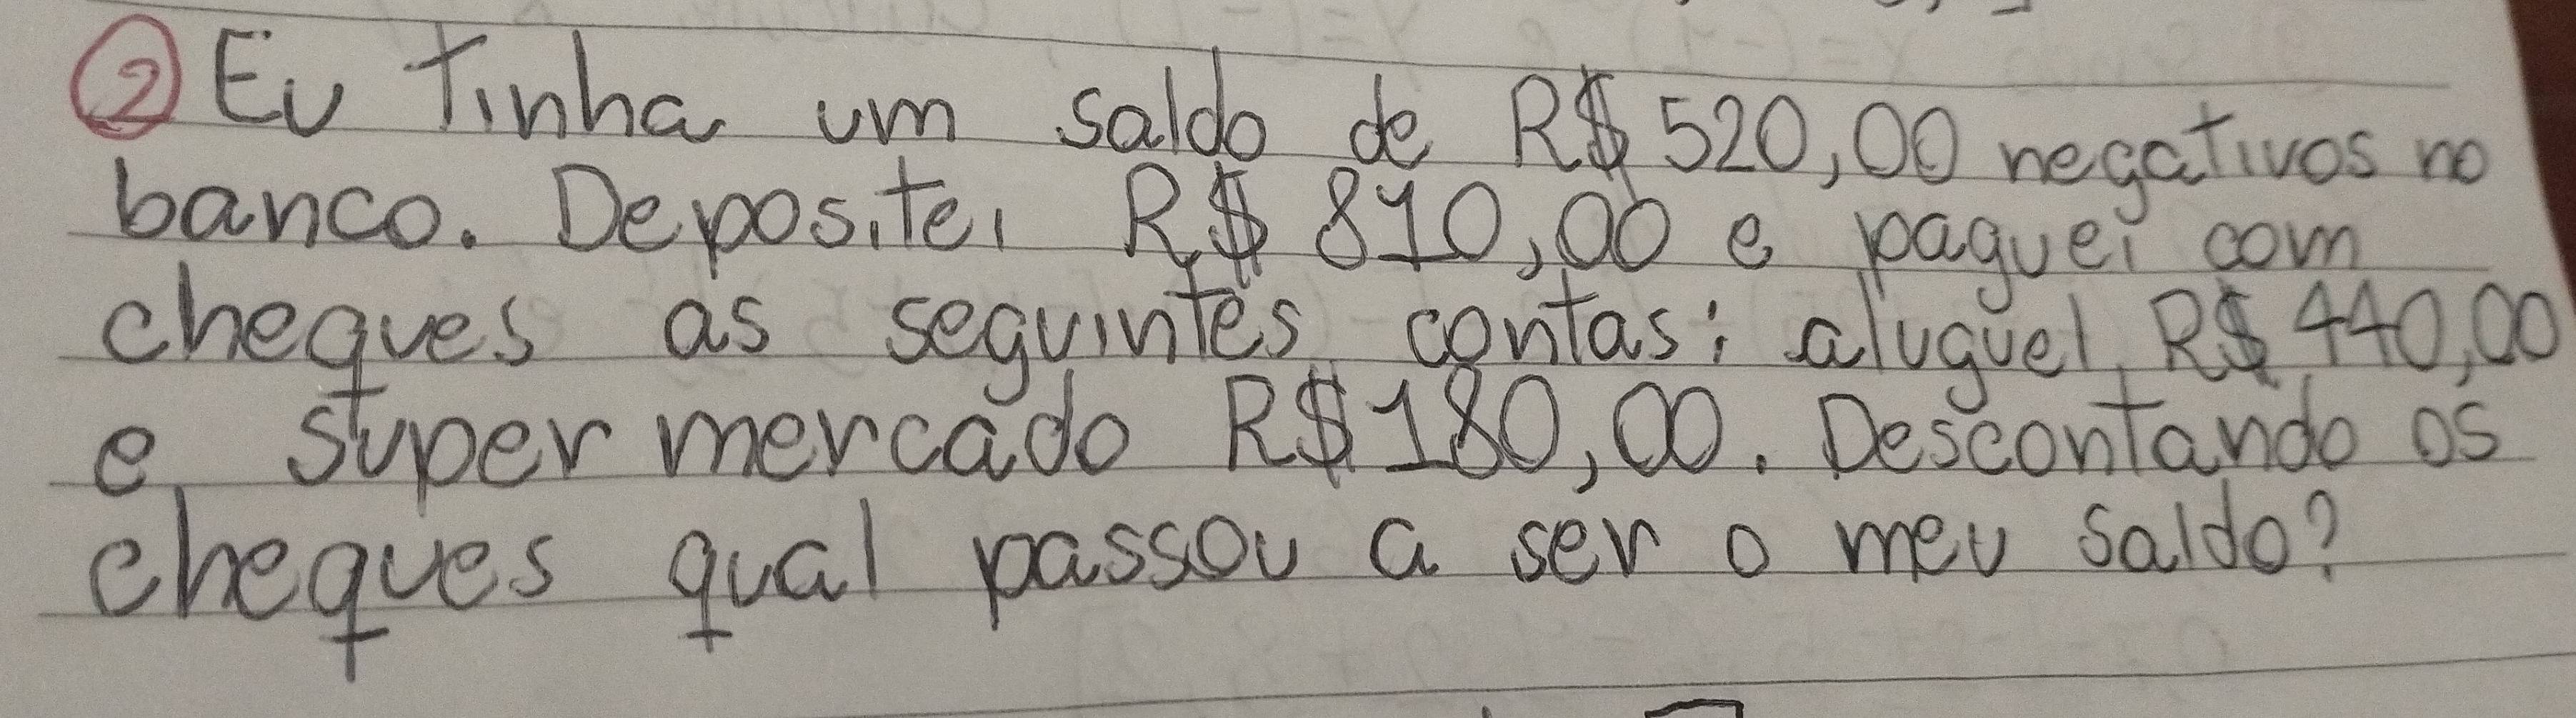 ② Eu Tinha um saldo de R$ 520,00 negativos no
banco. Depositei R$ 810,00 e paguei com
cheques as seguintes contas: aluguel, R$ 440,00
e, supermercado R$ 180,00. Descontando os
cheques qual passou a ser o meu saldo?